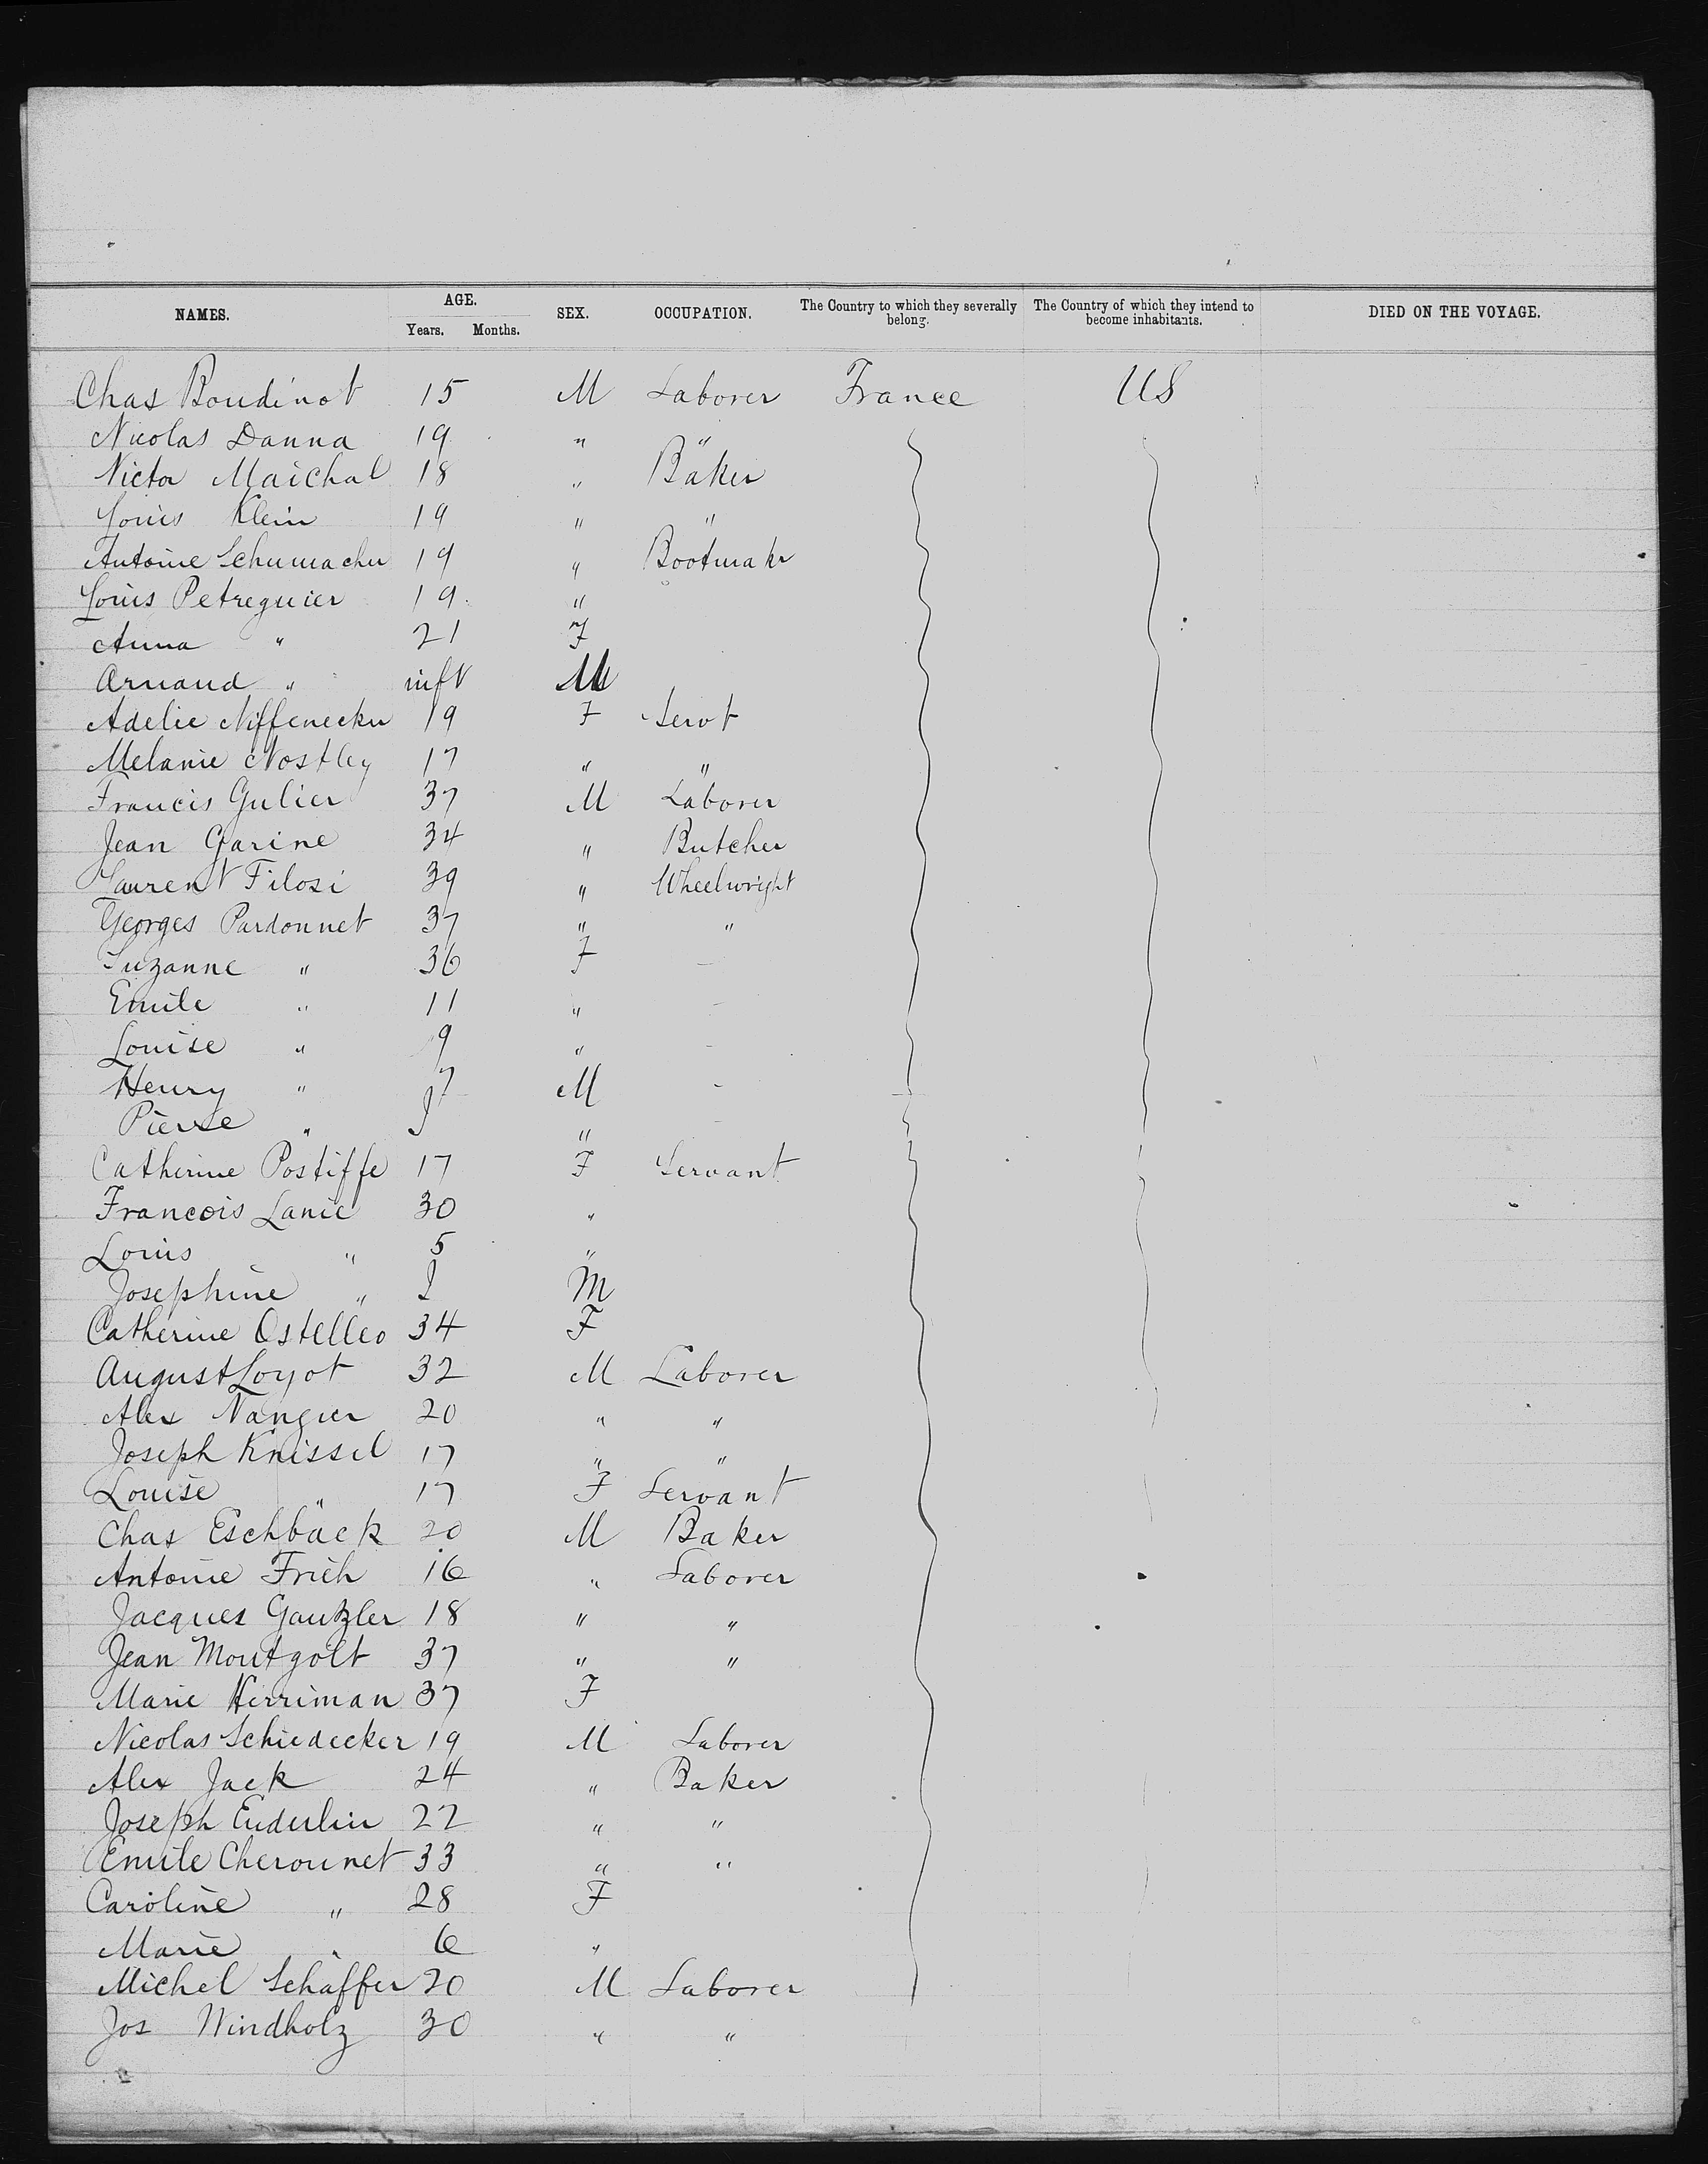 NAMES. AGE. SEX. OCCUPATION. The Country to which they severally belong. The Country of which they intend to become inhabitants. DIED ON THE VOYAGE.
Years. Months.
Chas Boudinot 15 M Laborer France US
Nicolas Danna 19 " "
Victor Maichal 18 " Baker
Louis Klein 19 " "
Antoine Schumacher 19 " Bootmakr
Louis Petreguier 19 "
Anna " 21 F
Arnaud " inft M
Adelie Niffenecker 19 F Servt
Melanie Nostley 17 " "
Francis Gulier 37 M Laborer
Jean Garine 34 " Butcher
Laurent Filosi 39 " Wheelwright
Georges Pardonnet 37 " "
Suzanne " 36 F –
Emile " 11 " –
Louise " 9 " –
Henry " 7 M –
Pierre " "  –
Catherine Postiffe 17 F Servant
Francois Lanie 30 "
Louis " 5 "
Josephine " M
Catherine Ostelleo 34 F
August Loyot 32 M Laborer
Alex Nangier 20 " "
Joseph Knissel 17 " "
Louise " 17 F Servant
Chas Eschback 20 M Baker
Antoine Frieh 16 " Laborer
Jacques Gantzler 18 " "
Jean Montgolt 37 " "
Marie Herriman 37 F
Nicolas Schiedecker 19 M Laborer
Alex Jack 24 " Baker
Joseph Enderlin 22 " "
Emile Cheronnet 33 " "
Caroline " 28 F
Marie " 6 "
Michel Schaffer 20 M Laborer
Jos Windholz 30 " "